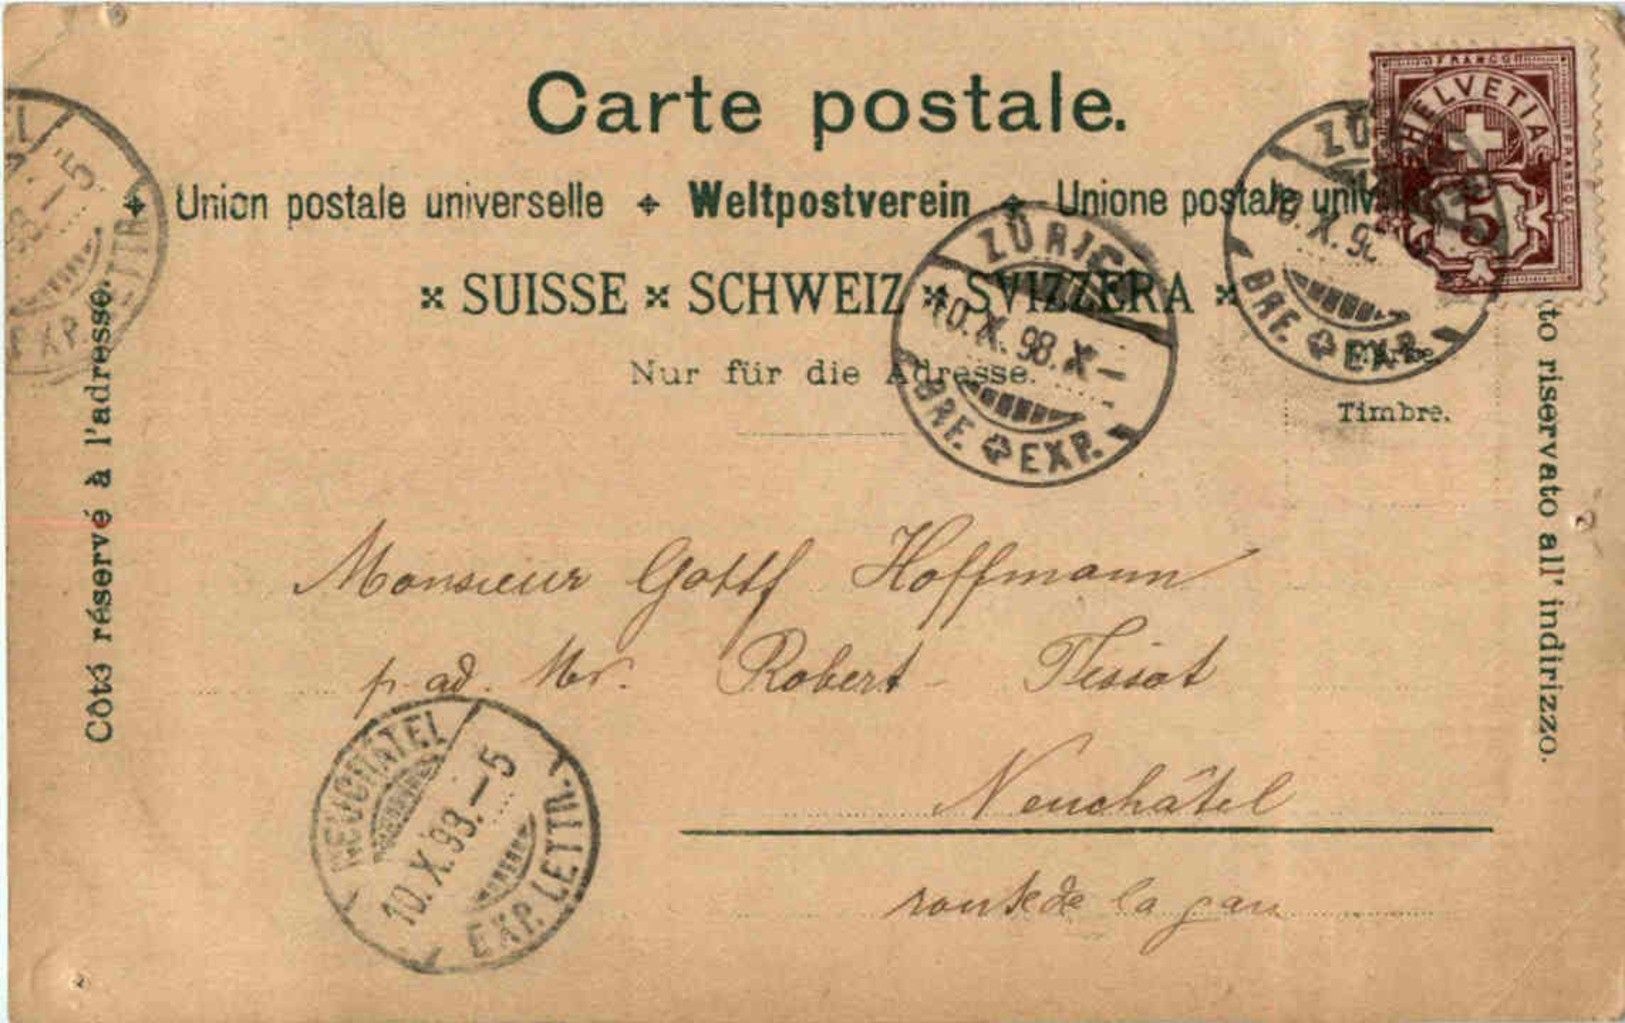 Carte postale.
Union postale universelle Weltpostverein Unione postale
SUISSE SCHWEIZ SVIZZERA
Nur für die Adresse.
FRANCO
HELVETIA
5
FRANCO
Timbre.
ZÜRICH
10.X.98.X–
BRF. EXP.
X.98
BRF. EXP.
98.–5
EXP. LETTR.
Côté réservé à l'adresse.
riservato all' indirizzo.
Monsieur Gottf Hoffmann
p. ad. Mr. Robert Tissot
Neuchâtel
route de la gare
NEUCHATEL
10.X.98.–5
EXP. LETTR.